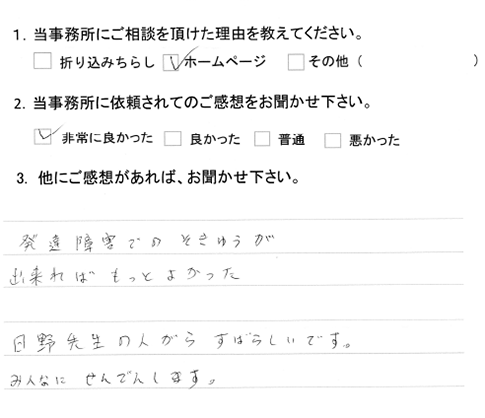 1. 当事務所にご相談を頂けた理由を教えてください。
□ 折り込みちらし ☑ ホームページ □ その他（　　　　　）
2. 当事務所に依頼されてのご感想をお聞かせ下さい。
☑ 非常に良かった □ 良かった □ 普通 □ 悪かった
3. 他にご感想があれば、お聞かせ下さい。
発達障害でのそきゅうが
出来ればもっとよかった
日野先生の人がらすばらしいです。
みんなにせんでんします。